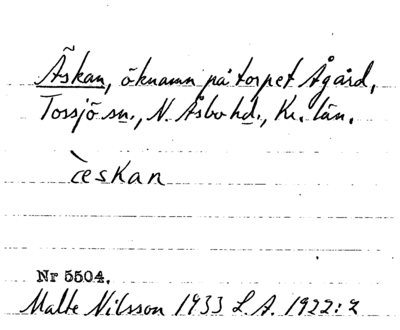 Äskan, öknamn på torpet Ågård,
Tossjö sn., N. Åsbo hd., Kr. län.
c̀eskan
Nr 5504.
Malte Nilsson 1933 L.A. 1922:2